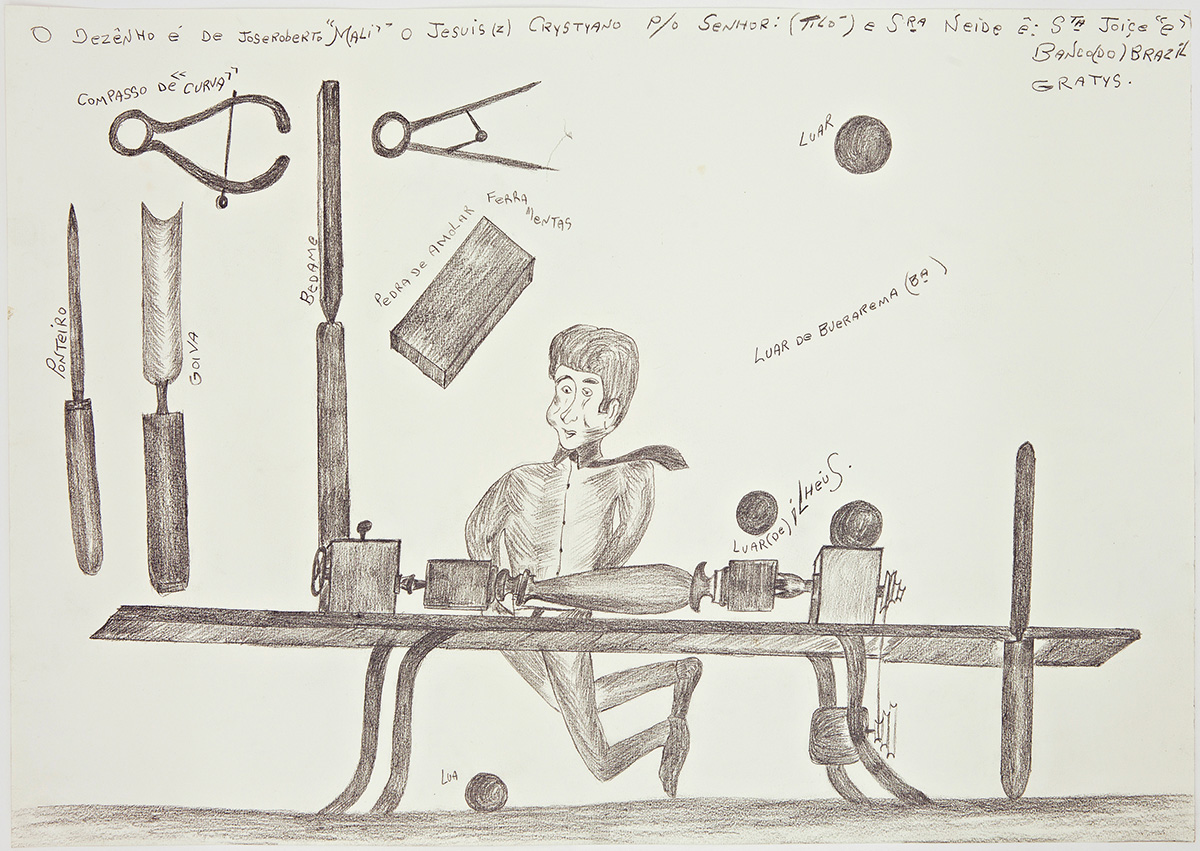 O DEZÊNHO É DE JOSEROBERTO "MALI" O JESUIS(Z) CRYSTYANO P/O SENHOR: (TILO) E SRA NEIDE Ê: STA JOIÇE "E"
BANCO(DO) BRAZIL
GRATYS.
COMPASSO DE "CURVA"
LUAR
FERRA
MENTAS
PEDRA DE AMOLAR
BEDAME
PONTEIRO
GOIVA
LUAR DE BUERAREMA (BA)
LUAR(DE) ILHÉUS.
LUA